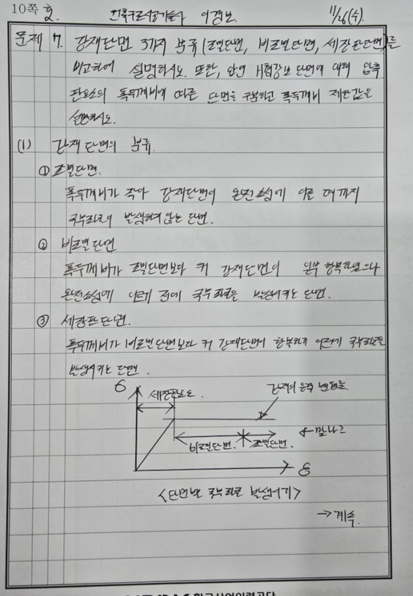 10쪽 중
11/26(수)
문제 7. 강재단면 3가지 분류(조밀단면, 비조밀단면, 세장판단면)를
비교하여 설명하시오. 또한, 압연 H형강보 단면에 대해 압축
판요소의 폭두께비에 따른 단면을 구분하고 폭두께비 제한값을
설명하시오.
(1) 강재 단면의 분류
① 조밀단면.
폭두께비가 작아 강재단면이 완전소성에 이를 때까지
국부좌굴이 발생하지 않는 단면.
② 비조밀단면
폭두께비가 조밀단면보다 커 강재단면의 일부 항복하였으나
완전소성에 이르기 전에 국부좌굴을 발생시키는 단면.
③ 세장판단면.
폭두께비가 비조밀단면보다 커 강재단면이 항복하기 이전에 국부좌굴을
발생시키는 단면.
세장판단면
비조밀단면. 조밀단면.
<단면별 국부좌굴 발생시기>
→ 계속.